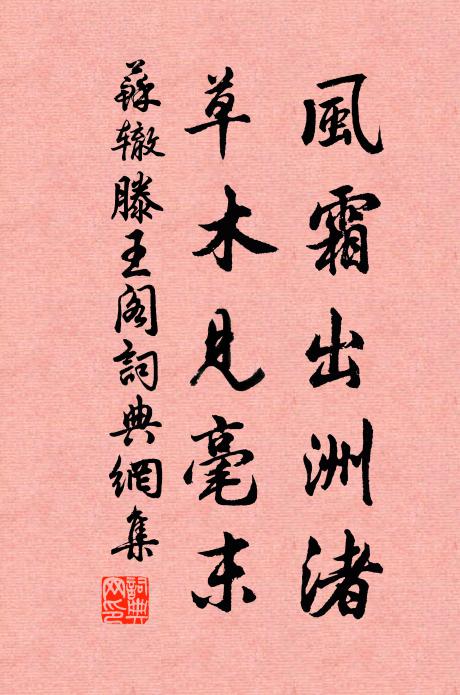 風霜出洲渚
草木見毫末
蘇辙滕王阁詞典網集
詞典网印